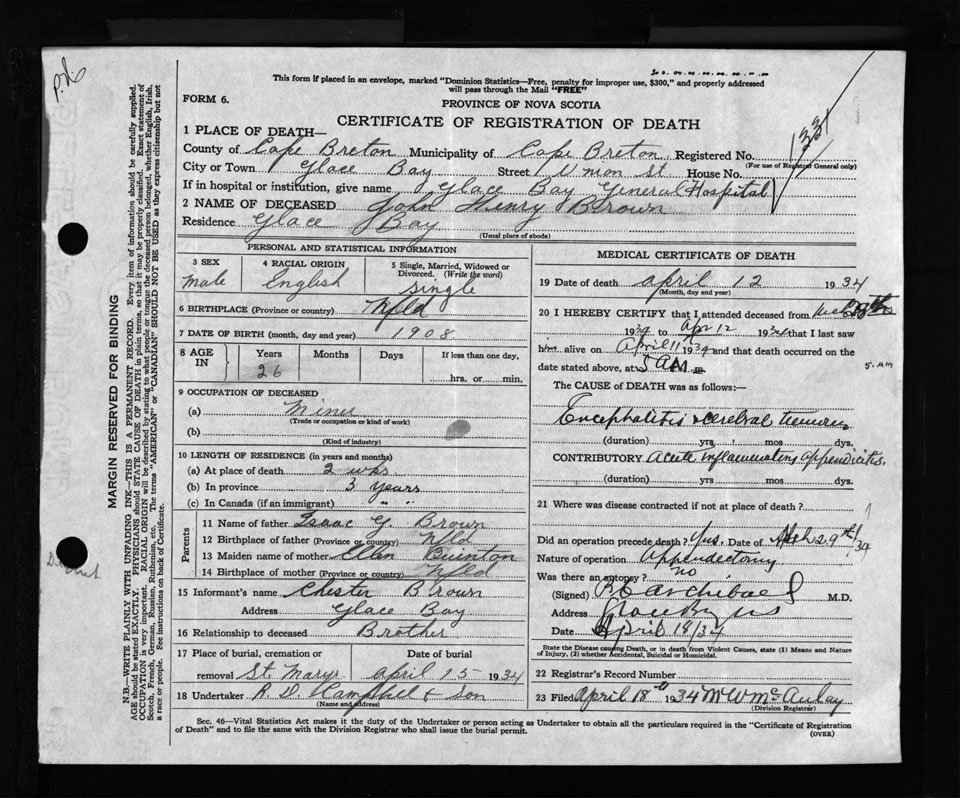 This form if placed in an envelope, marked "Dominion Statistics—Free, penalty for improper use, $300," and properly addressed
will pass through the Mail "FREE"
FORM 6.
PROVINCE OF NOVA SCOTIA
CERTIFICATE OF REGISTRATION OF DEATH
1331
1 PLACE OF DEATH—
County of Cape Breton Municipality of Cape Breton Registered No.
(For use of Registrar General only)
City or Town Glace Bay Street House No.
If in hospital or institution, give name Glace Bay General Hospital
2 NAME OF DECEASED John Henry Brown
Residence Glace Bay
(Usual place of abode)
PERSONAL AND STATISTICAL INFORMATION
3 SEX 4 RACIAL ORIGIN 5 Single, Married, Widowed or
Divorced. (Write the word)
Male English Single
6 BIRTHPLACE (Province or country) Nfld
7 DATE OF BIRTH (month, day and year) 1908
8 AGE IN Years Months Days If less than one day,
26 hrs. or min.
9 OCCUPATION OF DECEASED
(a) Miner
(Trade or occupation or kind of work)
(b)
(Kind of industry)
10 LENGTH OF RESIDENCE (in years and months)
(a) At place of death 2 wks
(b) In province 3 years
(c) In Canada (if an immigrant) " "
Parents
11 Name of father Isaac G. Brown
12 Birthplace of father (Province or country) Nfld
13 Maiden name of mother Ellen Buinton
14 Birthplace of mother (Province or country) Nfld
15 Informant's name Chester Brown
Address Glace Bay
16 Relationship to deceased Brother
17 Place of burial, cremation or Date of burial
removal St. Marys April 15 1934
18 Undertaker & Son
(Name and address)
MEDICAL CERTIFICATE OF DEATH
19 Date of death April 12 1934
(Month, day and year)
20 I HEREBY CERTIFY that I attended deceased from
1934 to Apr 12 1934 that I last saw
him alive on April 11 1934 and that death occurred on the
date stated above, at 5 AM m
5. AM
The CAUSE of DEATH was as follows:—
Encephalitis cerebral
(duration) yrs. mos. dys.
CONTRIBUTORY acute inflammatory appendicitis.
(duration) yrs. mos. dys.
21 Where was disease contracted if not at place of death ?
Did an operation precede death ? Yes. Date of Mch 29th/34
Nature of operation Appendectomy
Was there an autopsy ? no
(Signed) Archibald M.D.
Address Glace Bay NS
Date April 18/34
State the Disease causing Death, or in death from Violent Causes, state (1) Means and Nature
of Injury, (2) whether Accidental, Suicidal or Homicidal.
22 Registrar's Record Number
23 Filed April 18th 1934 M W McAulay
(Division Registrar)
Sec. 46—Vital Statistics Act makes it the duty of the Undertaker or person acting as Undertaker to obtain all the particulars required in the "Certificate of Registration
of Death" and to file the same with the Division Registrar who shall issue the burial permit.
(OVER)
MARGIN RESERVED FOR BINDING
N.B.—WRITE PLAINLY WITH UNFADING INK—THIS IS A PERMANENT RECORD. Every item of information should be carefully supplied.
AGE should be stated EXACTLY. PHYSICIANS should STATE CAUSE OF DEATH in plain terms, so that it may be properly classified. Exact statement of
OCCUPATION is very important. RACIAL ORIGIN will be described by stating to what people or tongue the deceased person belonged, whether English, Irish,
Scotch, French, German, Russian, Ruthenian, etc. The terms "AMERICAN" or "CANADIAN" SHOULD NOT BE USED as they express citizenship but not
a race or people. See instructions on back of Certificate.